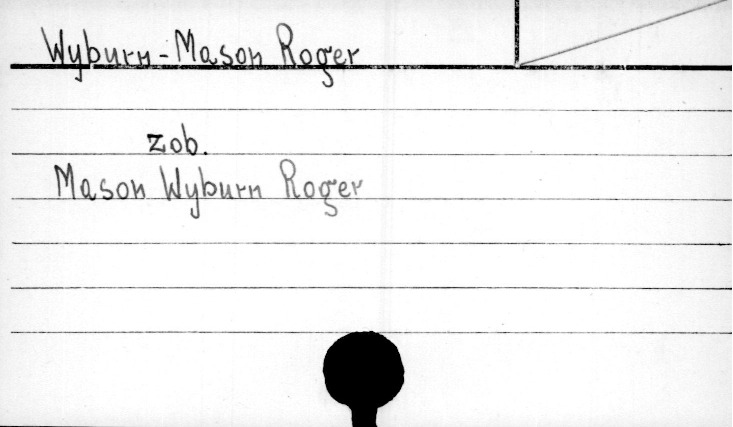 Wyburn-Mason Roger
zob.
Mason Wyburn Roger